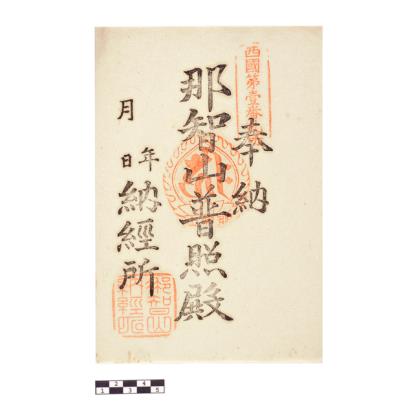 西國第壹番
奉納
那智山普照殿
年
月
日
納經所
那智山
納經所